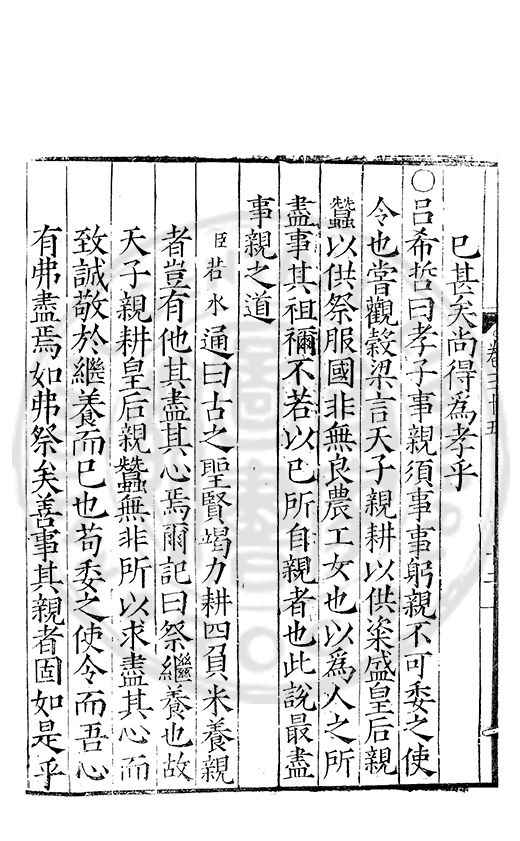 已甚矣尚得爲孝乎
○呂希哲曰孝子事親須事事躬親不可委之使
令也嘗觀穀梁言天子親耕以供粢盛皇后親
蠶以供祭服國非無良農工女也以爲人之所
盡事其祖禰不若以已所自親者也此說最盡
事親之道
臣若水通曰古之聖賢竭力耕四負米養親
者豈有他其盡其心焉爾記曰祭繼養也故
天子親耕皇后親蠶無非所以求盡其心而
致誠敬於繼養而已也苟委之使令而吾心
有弗盡焉如弗祭矣善事其親者固如是乎
卷三十五